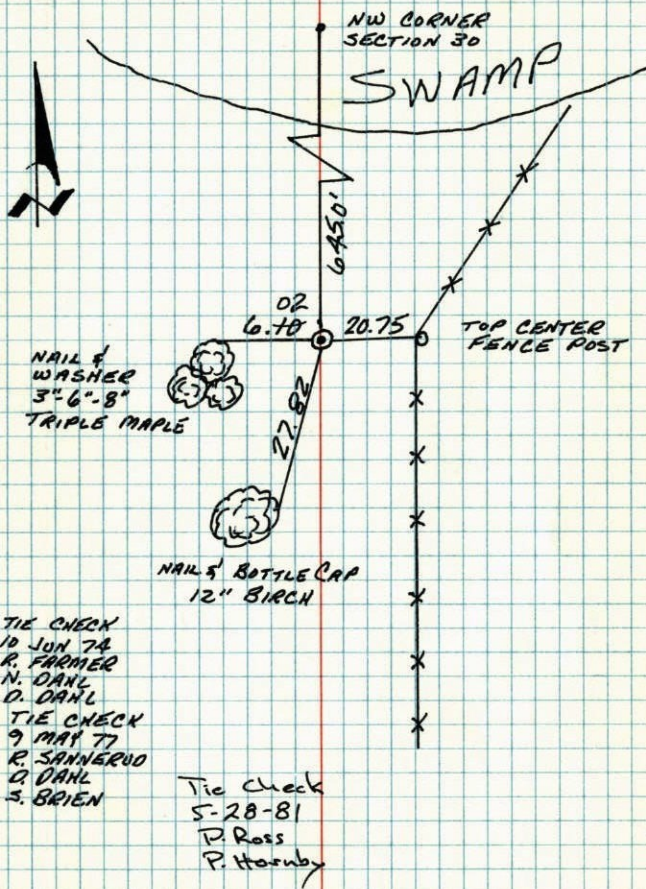 NW CORNER
SECTION 30
SWAMP
N
645.0'
02
6.10
20.75
TOP CENTER
FENCE POST
NAIL &
WASHER
3"-6"-8"
TRIPLE MAPLE
27.82
NAIL & BOTTLE CAP
12" BIRCH
TIE CHECK
10 JUN 74
R. FARMER
N. DAHL
D. DAHL
TIE CHECK
9 MAY 77
R. SANNERUD
D. DAHL
S. BRIEN
Tie Check
5-28-81
P. Ross
P. Hornby